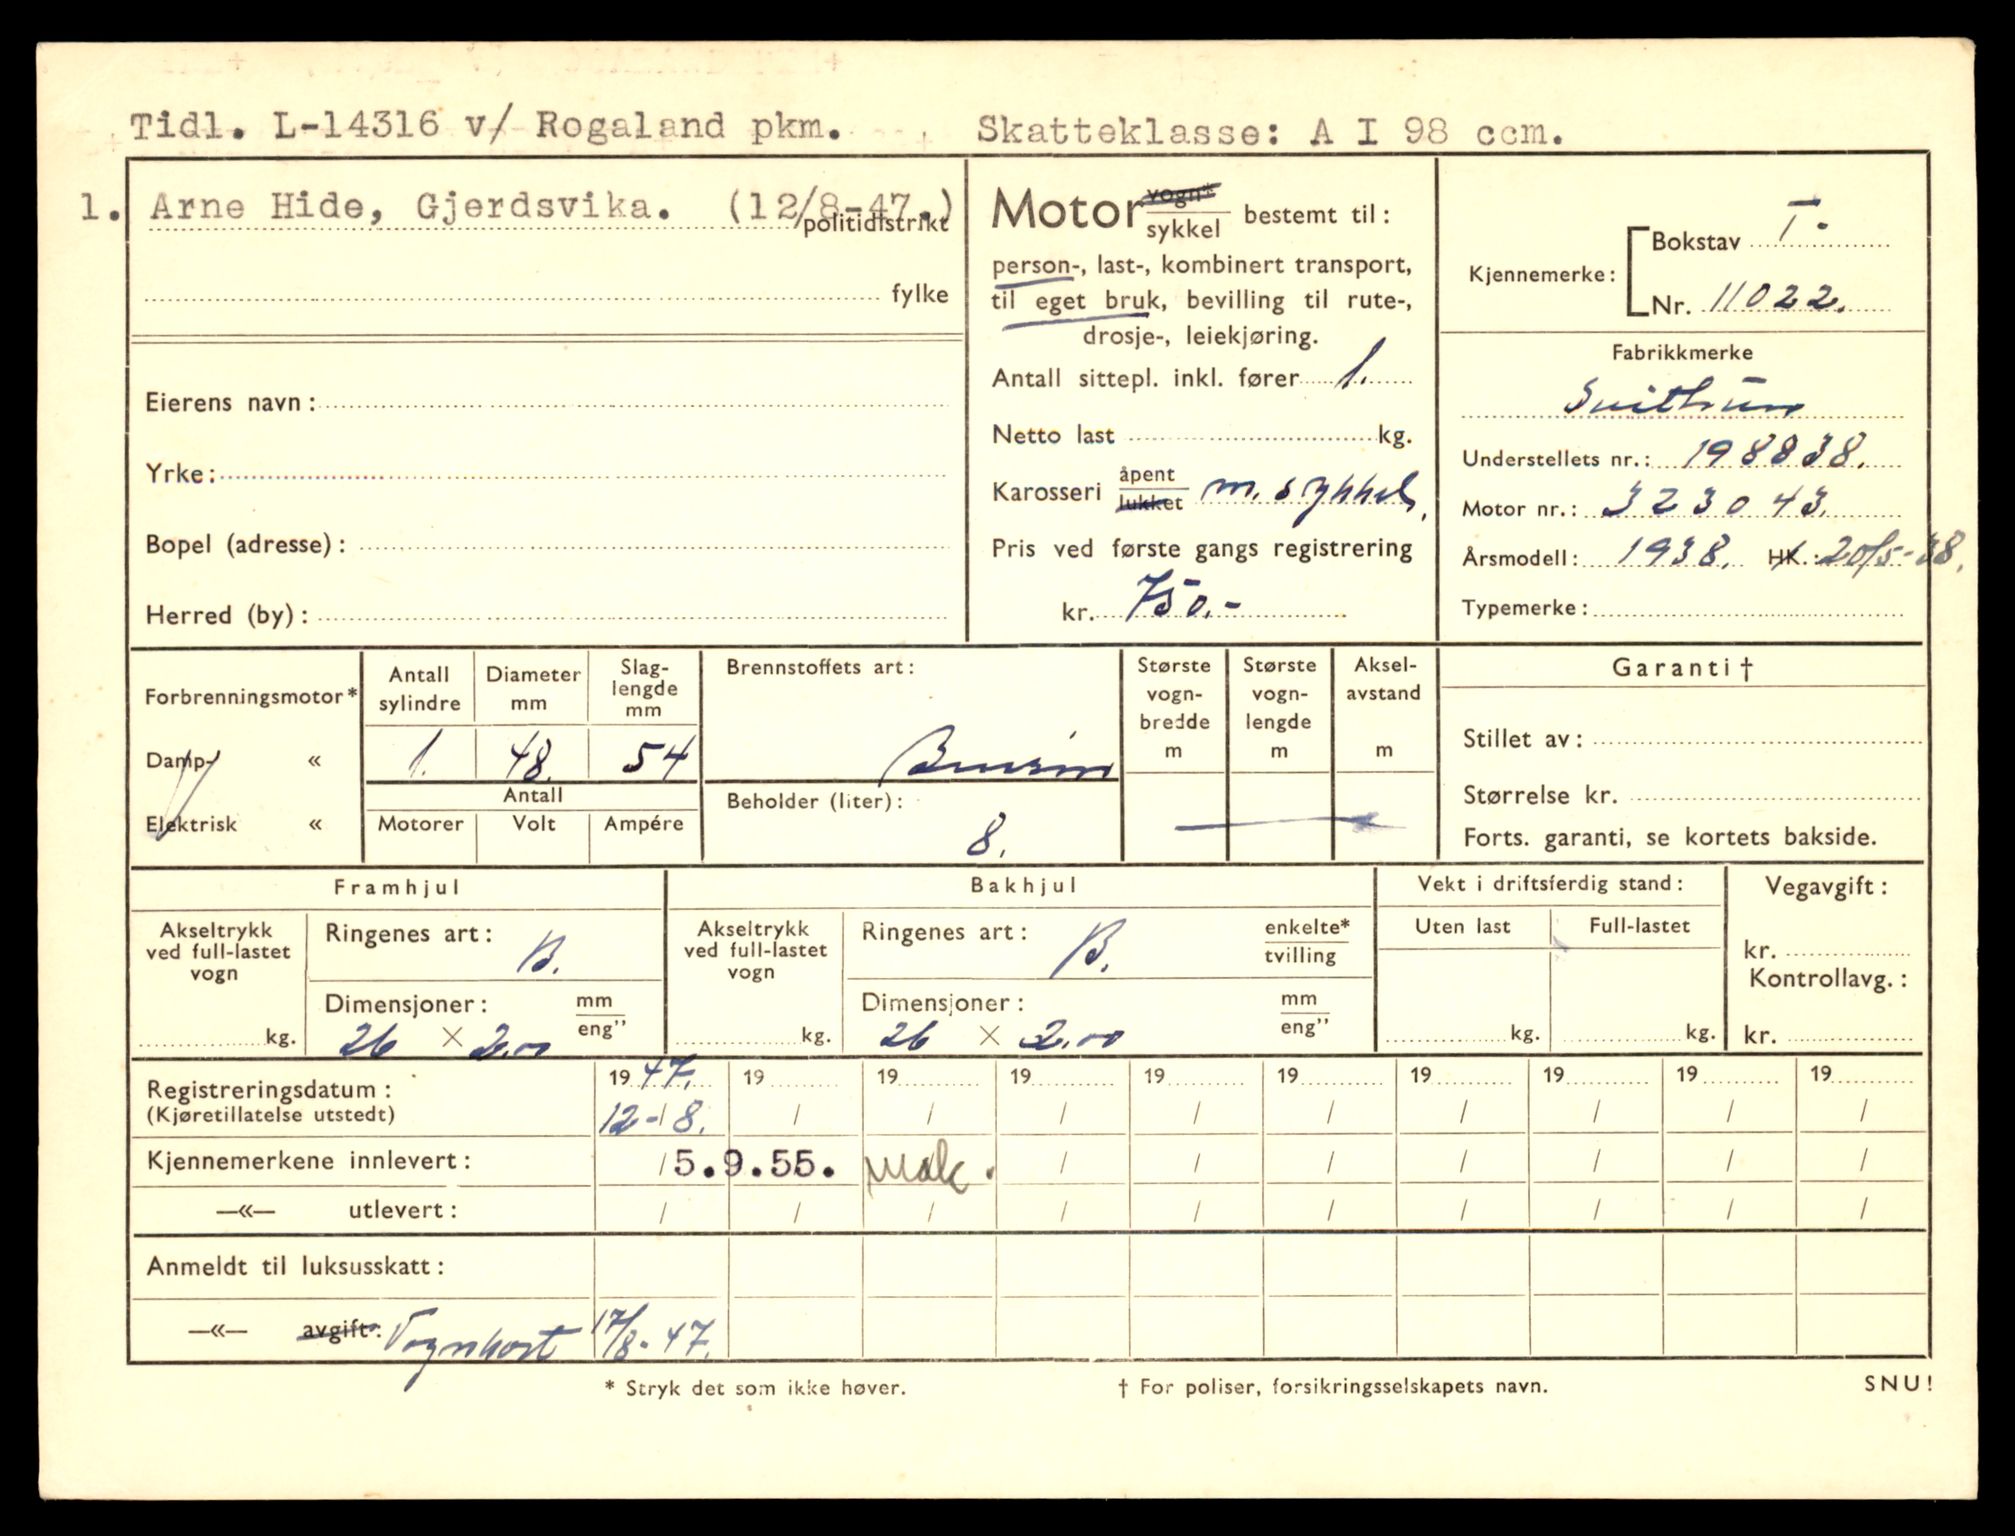 Tidl. L-14316 v/ Rogaland pkm. Skatteklasse: A I 98 ccm.
1. Arne Hide, Gjerdsvika. (12/8-47.)
politidistrikt
fylke
Eierens navn:
Yrke:
Bopel (adresse):
Herred (by):
Motor vogn* sykkel bestemt til:
person-, last-, kombinert transport,
til eget bruk, bevilling til rute-,
drosje-, leiekjøring.
Antall sittepl. inkl. fører 1.
Netto last kg.
Karosseri åpent lukket m. sykkel,
Pris ved første gangs registrering
kr. 750.-
Kjennemerke: Bokstav T.
Nr. 11022.
Fabrikkmerke
Understellets nr.: 198838.
Motor nr.: 323043.
Årsmodell: 1938. HK.: 20/5-38.
Typemerke:
Forbrenningsmotor*
Damp- «
Elektrisk «
Antall sylindre
1.
Diameter mm
48.
Slaglengde mm
54
Antall
Motorer Volt Ampére
Brennstoffets art:
Bensin
Beholder (liter):
8.
Største vogn-bredde m
Største vogn-lengde m
Aksel-avstand m
Garanti †
Stillet av:
Størrelse kr.
Forts. garanti, se kortets bakside.
Framhjul
Akseltrykk ved full-lastet vogn
kg.
Ringenes art: B.
Dimensjoner: mm eng”
26 × 2.00
Bakhjul
Akseltrykk ved full-lastet vogn
kg.
Ringenes art: B. enkelte* tvilling
Dimensjoner: mm eng”
26 × 2.00
Vekt i driftsferdig stand:
Uten last Full-lastet
kg. kg.
Vegavgift:
kr.
Kontrollavg.:
kr.
Registreringsdatum: 1947. 19 19 19 19 19 19 19 19 19
(Kjøretillatelse utstedt) 12-/8. / / / / / / / / /
Kjennemerkene innlevert: / 5.9.55. Mak. / / / / / / /
—«— utlevert: / / / / / / / / / /
Anmeldt til luksusskatt:
—«— avgift: Vognkort 17/8-47.
* Stryk det som ikke høver. † For poliser, forsikringsselskapets navn. SNU!